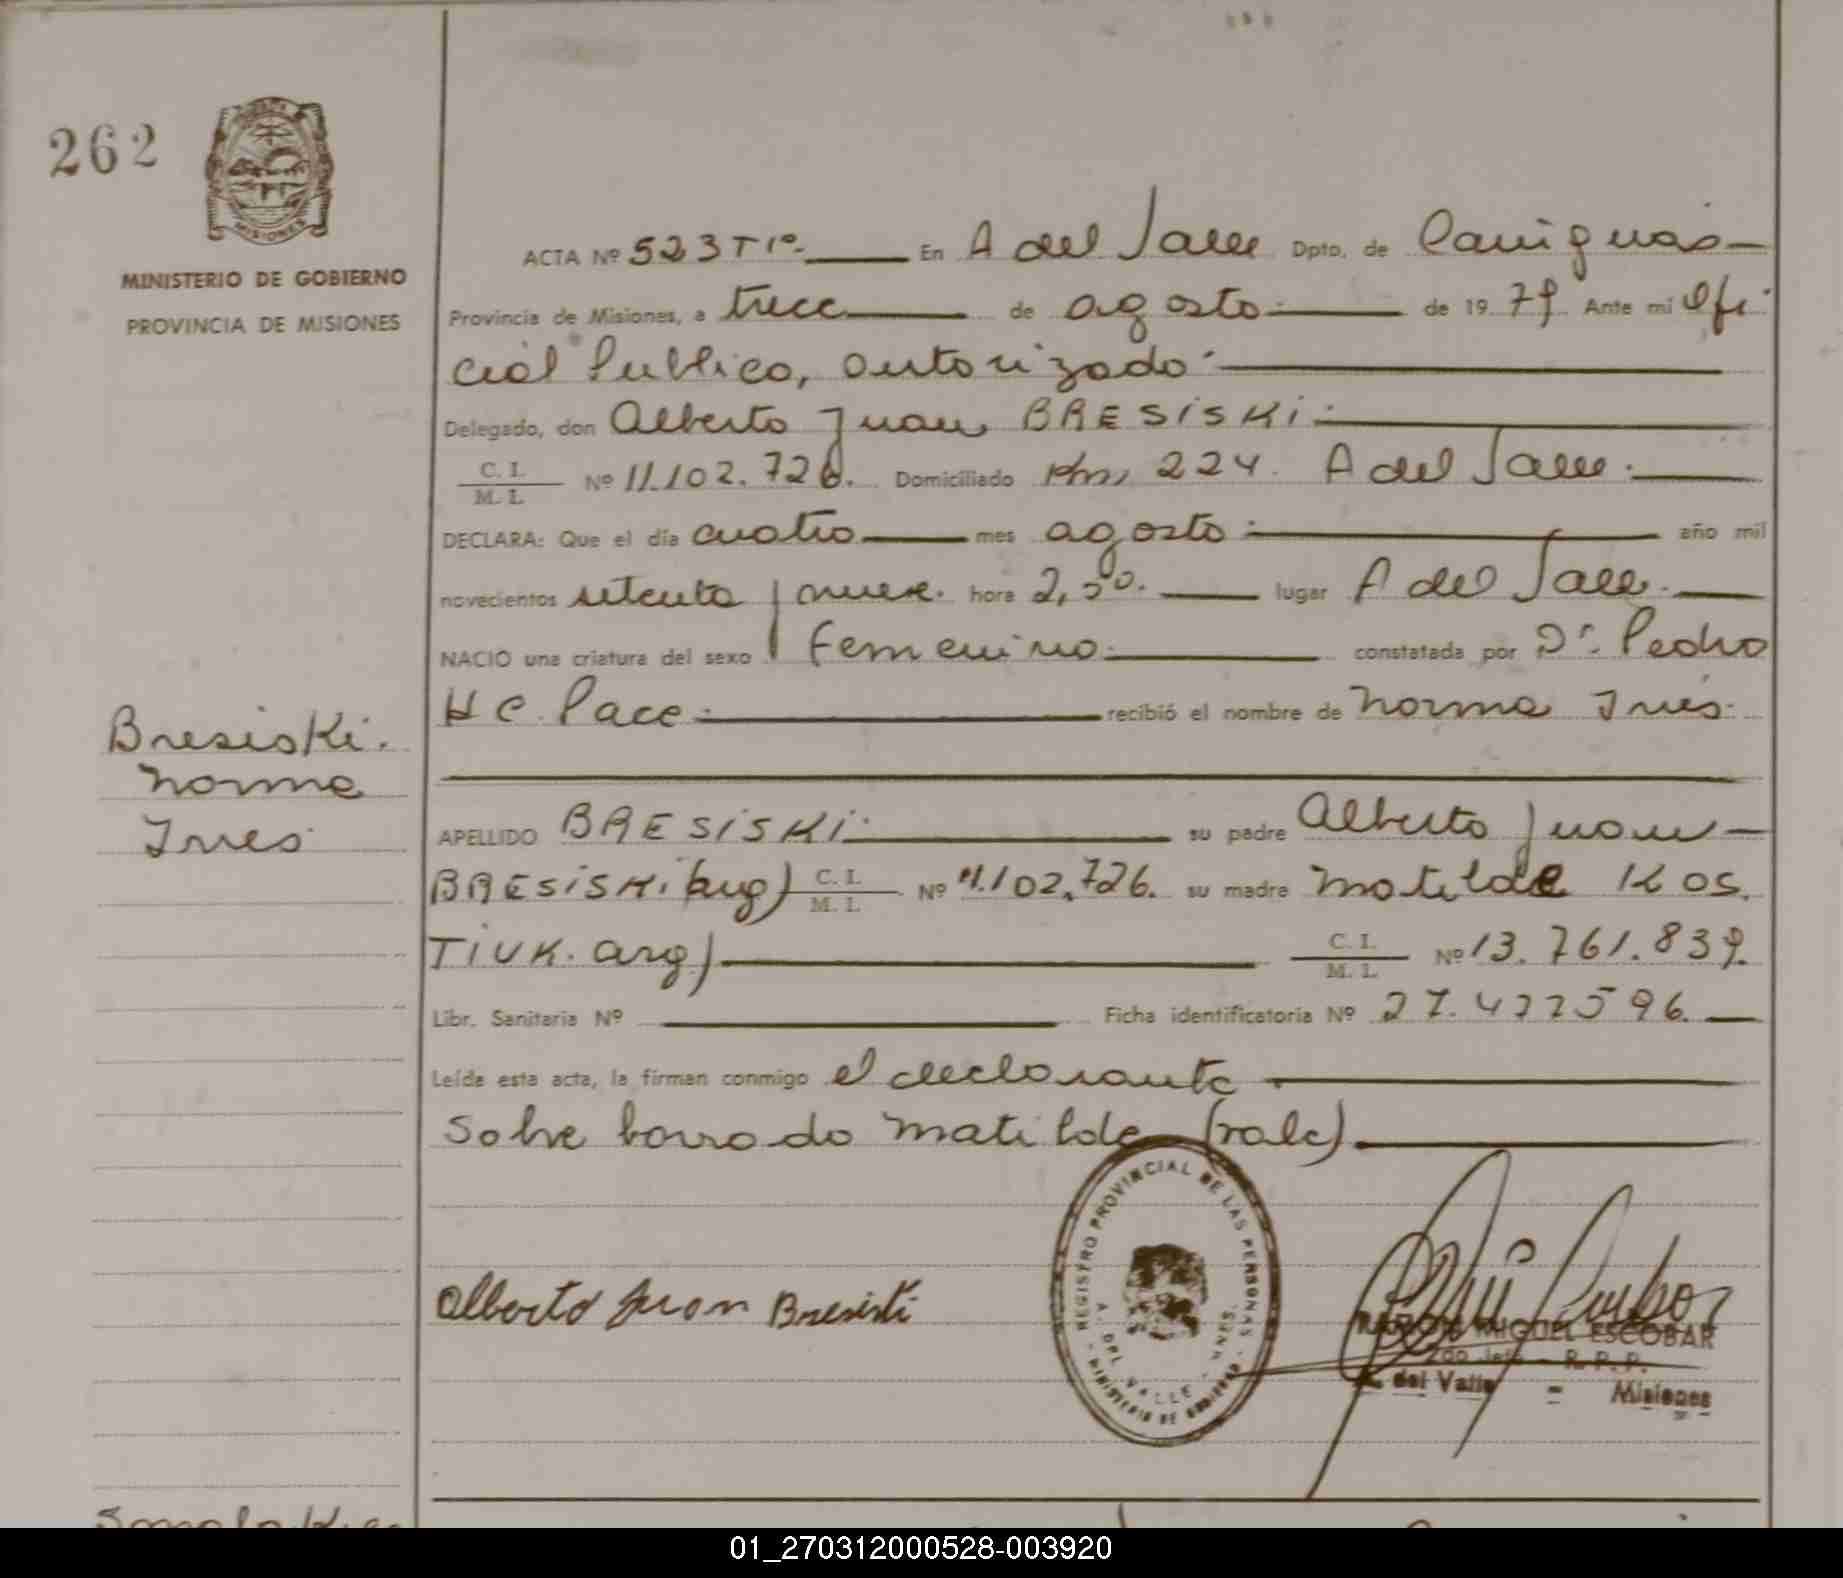 262
MISIONES
MINISTERIO DE GOBIERNO
PROVINCIA DE MISIONES
ACTA Nº 523 Tº I En A del Valle Dpto. de Cainguás
Provincia de Misiones, a trece de agosto de 19 79 Ante mi Ofi
cial Publico, autorizado
Delegado, don Alberto Juan BRESiSKi
C. I.
M. I. Nº 11.102.726. Domiciliado Km, 224. A del Valle.
DECLARA: Que el día cuatro mes agosto año mil
novecientos setenta y nueve. hora 2,50. lugar A del Valle.
NACIO una criatura del sexo femenino constatada por Dr. Pedro
H C. Pace recibió el nombre de Norma Ines
Bresiski.
Norma
Ines
APELLIDO BRESiSKi su padre Alberto Juan
BRESiSKi (arg) C. I.
M. I. Nº 11.102.726. su madre Matilde KOS
TiUK. arg) C. I.
M. I. Nº 13.761.839.
Libr. Sanitaria Nº Ficha identificatoria Nº 27.477596.
Leída esta acta, la firman conmigo el declarante
Sobre borrado Matilde (vale)
REGISTRO PROVINCIAL DE LAS PERSONAS
A. DEL VALLE - MNES.
MINISTERIO DE GOBIERNO
Alberto Juan Bresiski
MIGUEL ESCOBAR
2do Jefe - R. P. P.
A. del Valle - Misiones
01_270312000528-003920